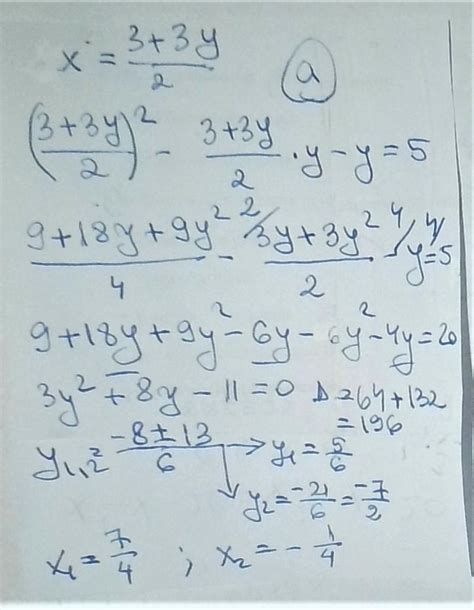 x = \frac{3+3y}{2}
a
\left(\frac{3+3y}{2}\right)^2 - \frac{3+3y}{2} \cdot y - y = 5
\frac{9+18y+9y^2}{4} - \frac{3y+3y^2}{2} - y = 5
9+18y+9y^2-6y-6y^2-4y=20
3y^2+8y-11=0 Δ=64+132
=196
y_{1,2} \frac{-8±13}{6} → y_1=\frac{5}{6}
y_2=\frac{-21}{6}=\frac{-7}{2}
x_1=\frac{7}{4} ; x_2=-\frac{1}{4}